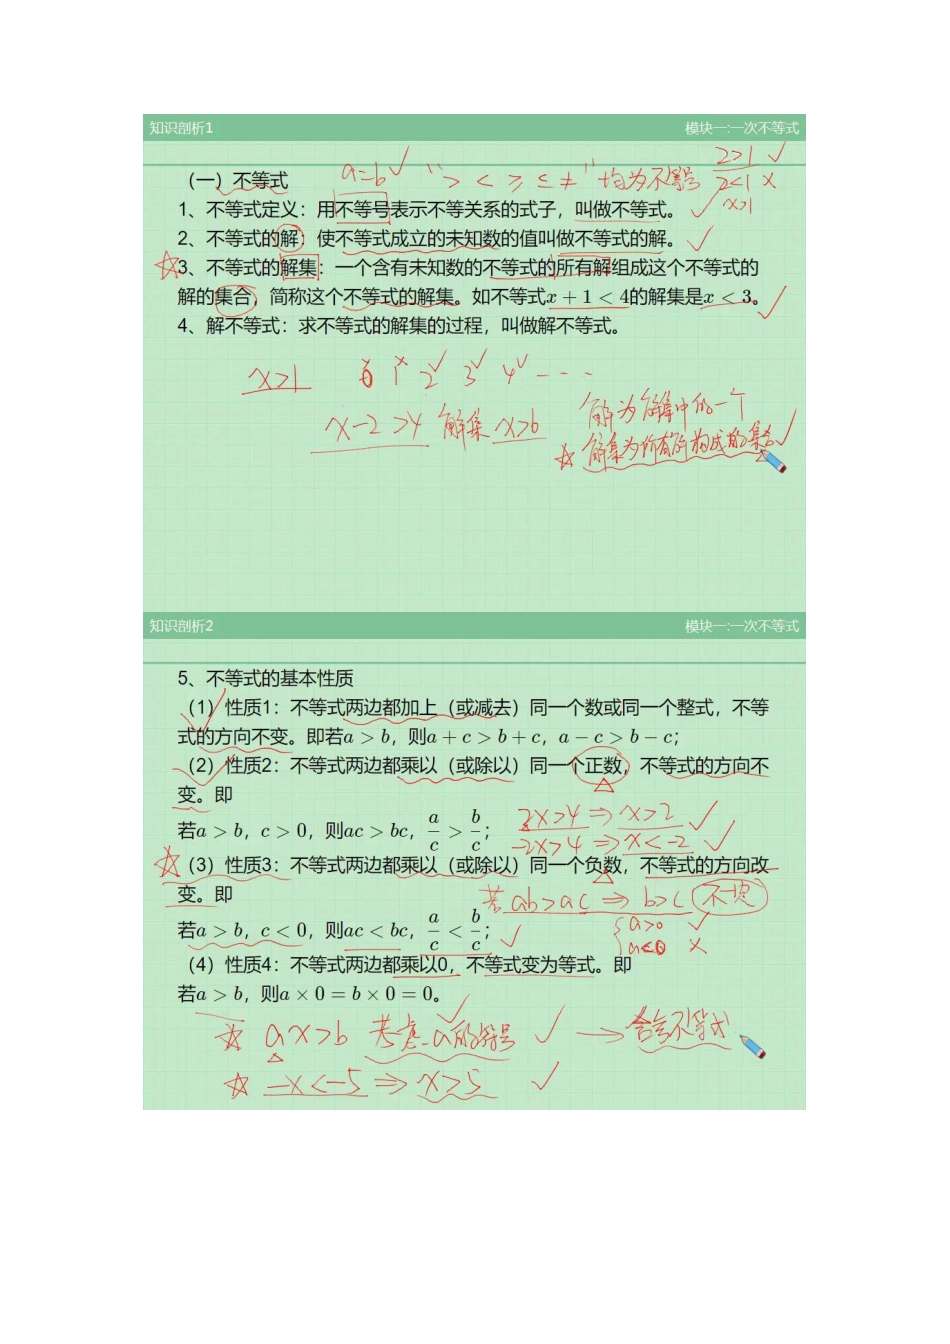 知识剖析1 模块一:一次不等式
（一）不等式 a=b "> < ≥ ≤ ≠" 均为不等号 2>1
2<1 ×
1、不等式定义：用不等号表示不等关系的式子，叫做不等式。 x>1
2、不等式的解：使不等式成立的未知数的值叫做不等式的解。
3、不等式的解集：一个含有未知数的不等式的所有解组成这个不等式的
解的集合，简称这个不等式的解集。如不等式x+1<4的解集是x<3。
4、解不等式：求不等式的解集的过程，叫做解不等式。
x>1 0 1 2 3 4 ---
x-2>4 解集 x>6 解为解集中的一个
解集为所有解构成的集合
知识剖析2 模块一:一次不等式
5、不等式的基本性质
（1）性质1：不等式两边都加上（或减去）同一个数或同一个整式，不等
式的方向不变。即若a>b，则a+c>b+c，a-c>b-c；
（2）性质2：不等式两边都乘以（或除以）同一个正数，不等式的方向不
变。即
2x>4 ⇒ x>2
若a>b，c>0，则ac>bc，a/c>b/c；
-2x>4 ⇒ x<-2
（3）性质3：不等式两边都乘以（或除以）同一个负数，不等式的方向改
变。即
若 ab>ac ⇒ b>c 不一定
若a>b，c<0，则ac<bc，a/c<b/c；
a>0
a<0 ×
（4）性质4：不等式两边都乘以0，不等式变为等式。即
若a>b，则a×0=b×0=0。
ax>b 考虑a的符号 → 含参不等式
-x<-5 ⇒ x>5